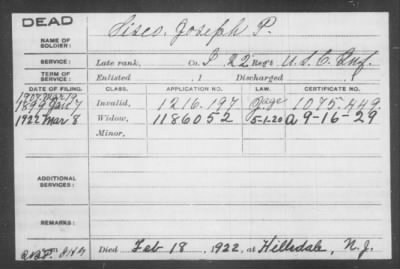 DEAD
NAME OF SOLDIER: Sisco, Joseph P.
SERVICE: Late rank, Co. I 22 Reg't U.S.C. Inf.
TERM OF SERVICE: Enlisted , 1 Discharged , 1
DATE OF FILING. CLASS. APPLICATION NO. LAW. CERTIFICATE NO.
1907 Mar 19
1899 Jan 7 Invalid, 1216.197 1075.449.
1922 Mar 8 Widow, 1186052 5-1-20 a 9-16-29
Minor,
ADDITIONAL SERVICES:
REMARKS:
Died Feb 18, 1922, at Hillsdale, N.J.